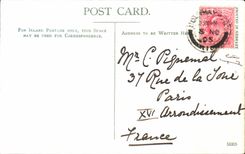 POST CARD.
FOR INLAND POSTAGE ONLY, THIS SPACE
MAY BE USED FOR CORRESPONDENCE.
ADDRESS TO BE WRITTEN HERE
NO
05
Mr C. Piquemal
37 Rue de la
Paris
XVI Arrondissement
France